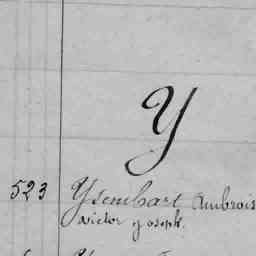 Y
523 Ysembart Ambrois
victor joseph.